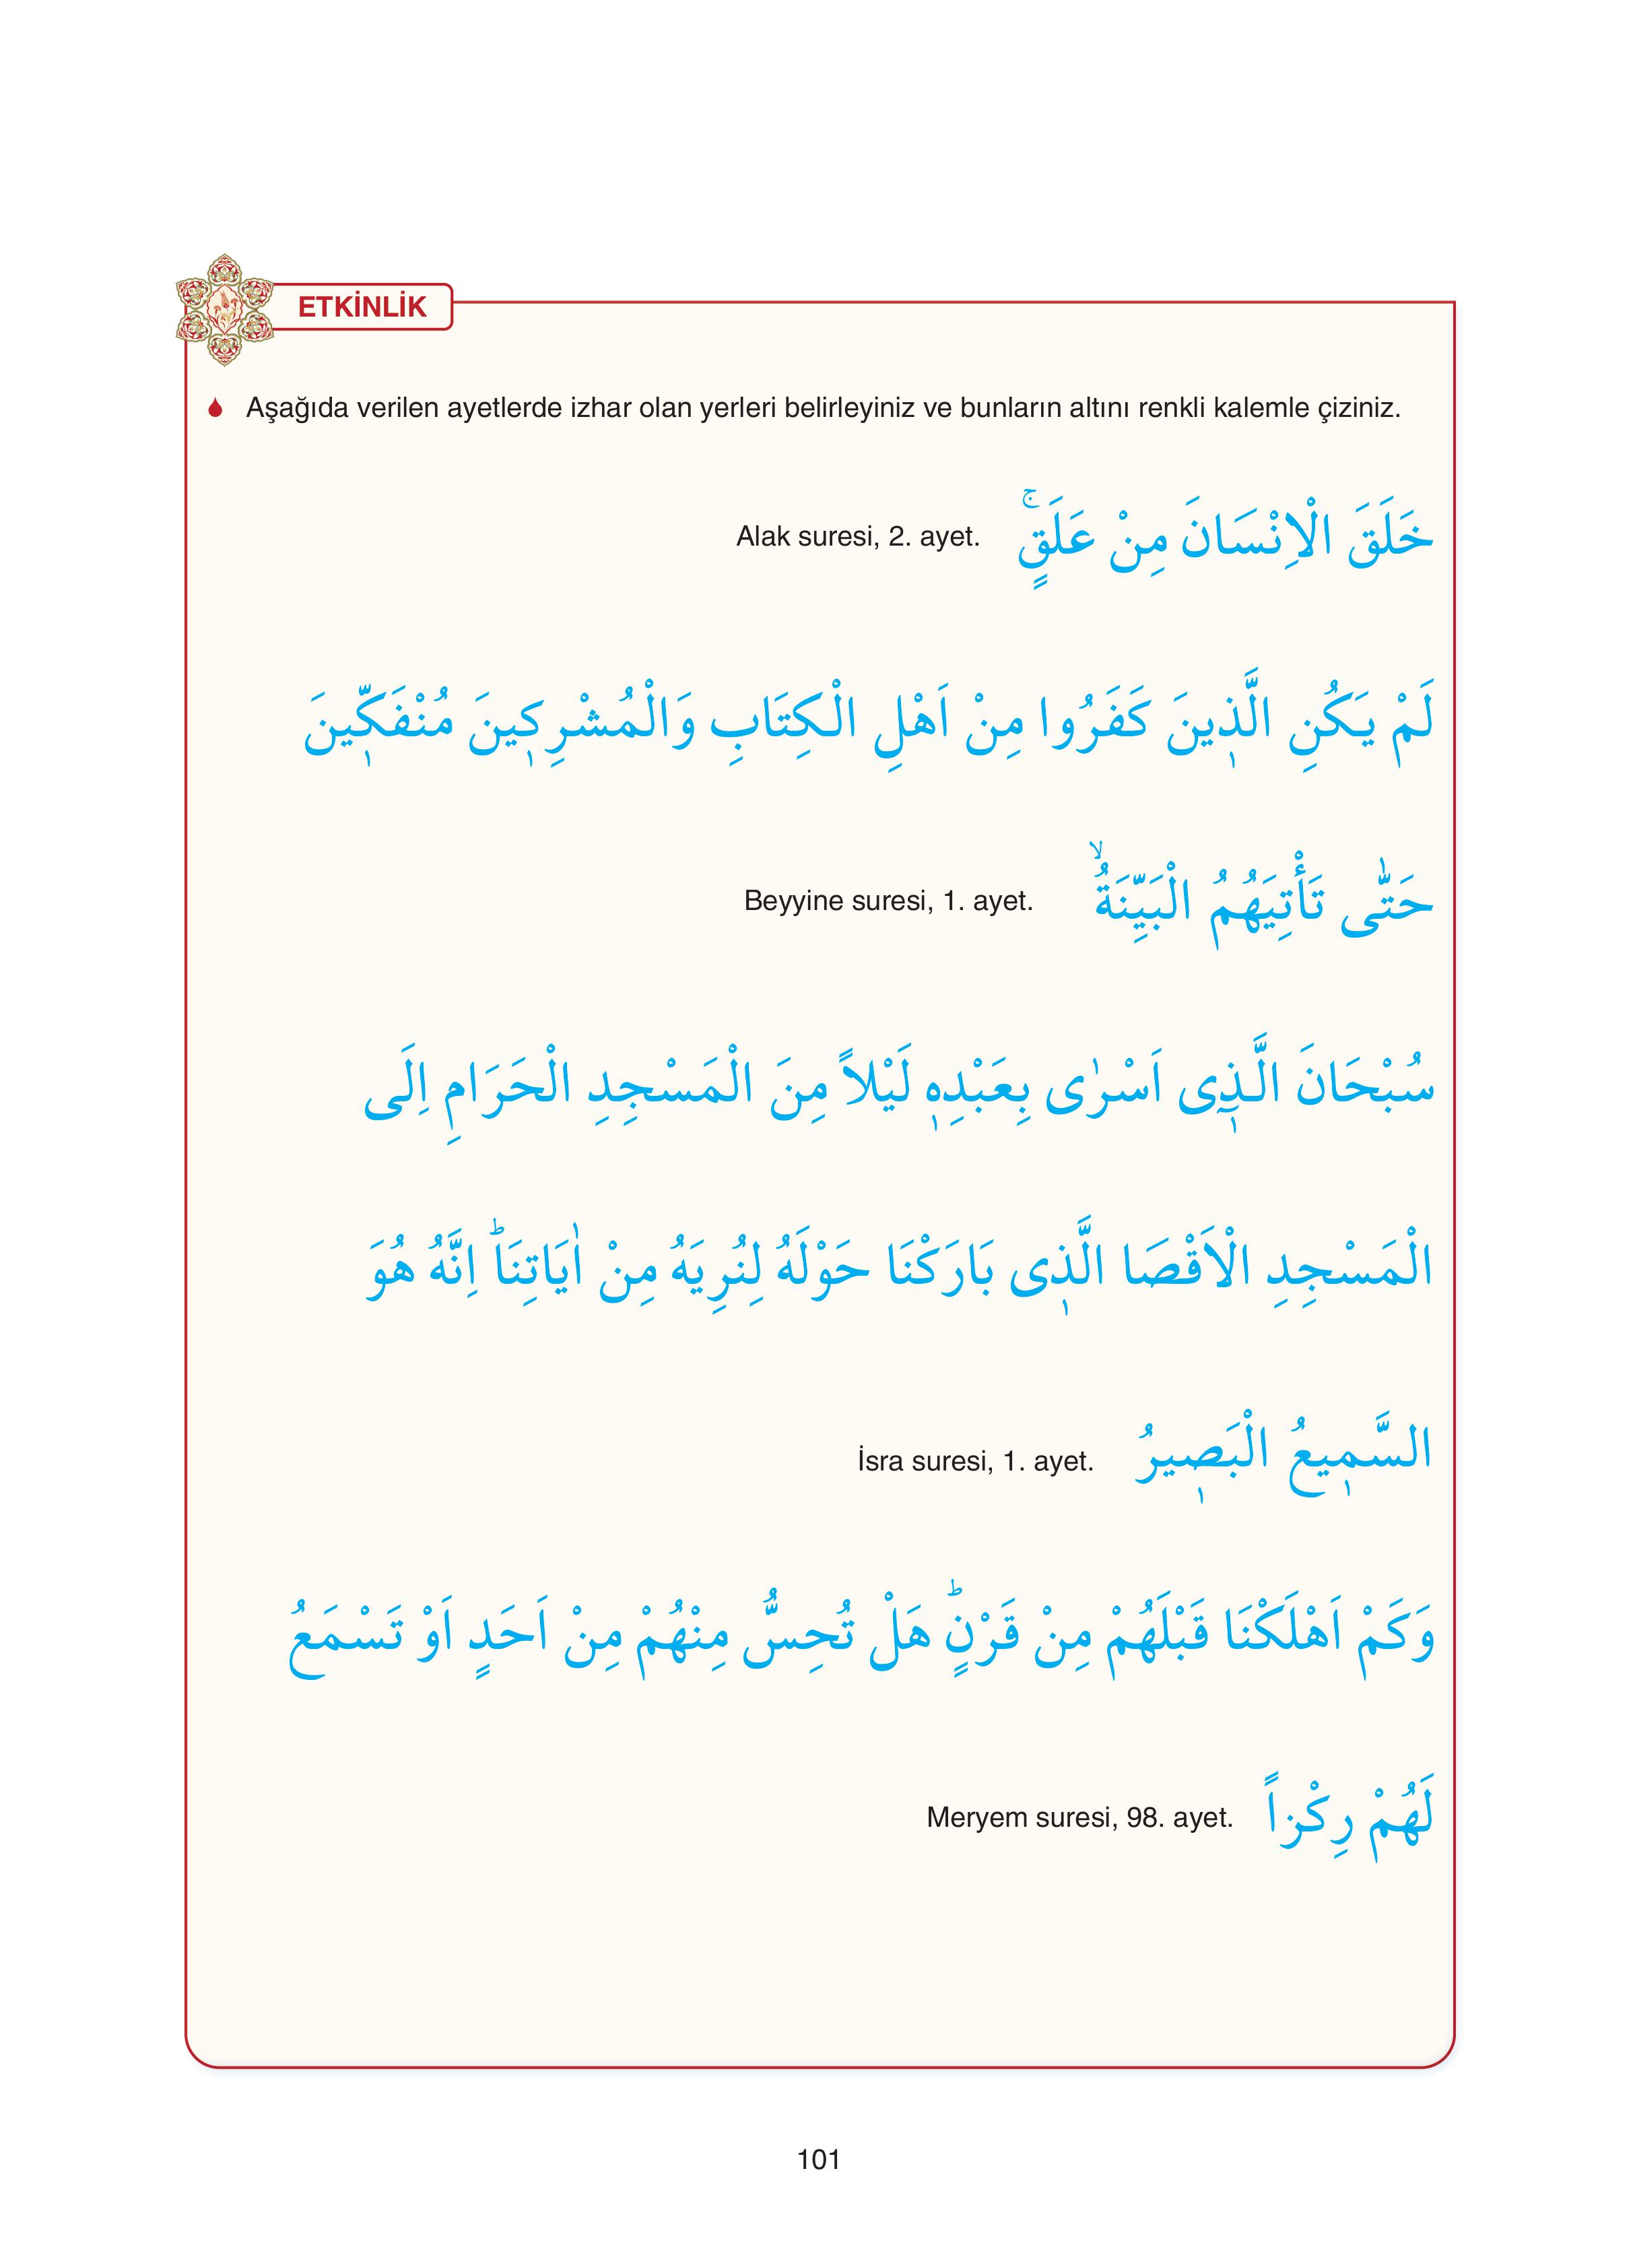 ETKİNLİK
Aşağıda verilen ayetlerde izhar olan yerleri belirleyiniz ve bunların altını renkli kalemle çiziniz.
خَلَقَ الْاِنْسَانَ مِنْ عَلَقٍۚ Alak suresi, 2. ayet.
لَمْ يَكُنِ الَّذ۪ينَ كَفَرُوا مِنْ اَهْلِ الْكِتَابِ وَالْمُشْرِك۪ينَ مُنْفَكّ۪ينَ
حَتّٰى تَأْتِيَهُمُ الْبَيِّنَةُۙ Beyyine suresi, 1. ayet.
سُبْحَانَ الَّـذ۪ٓى اَسْرٰى بِعَبْدِه۪ لَيْلاً مِنَ الْمَسْجِدِ الْحَرَامِ اِلَى
الْمَسْجِدِ الْاَقْصَا الَّذ۪ى بَارَكْنَا حَوْلَهُ لِنُرِيَهُ مِنْ اٰيَاتِنَاۜ اِنَّهُ هُوَ
السَّم۪يعُ الْبَص۪يرُ İsra suresi, 1. ayet.
وَكَمْ اَهْلَكْنَا قَبْلَهُمْ مِنْ قَرْنٍۜ هَلْ تُحِسُّ مِنْهُمْ مِنْ اَحَدٍ اَوْ تَسْمَعُ
لَهُمْ رِكْزاً Meryem suresi, 98. ayet.
101